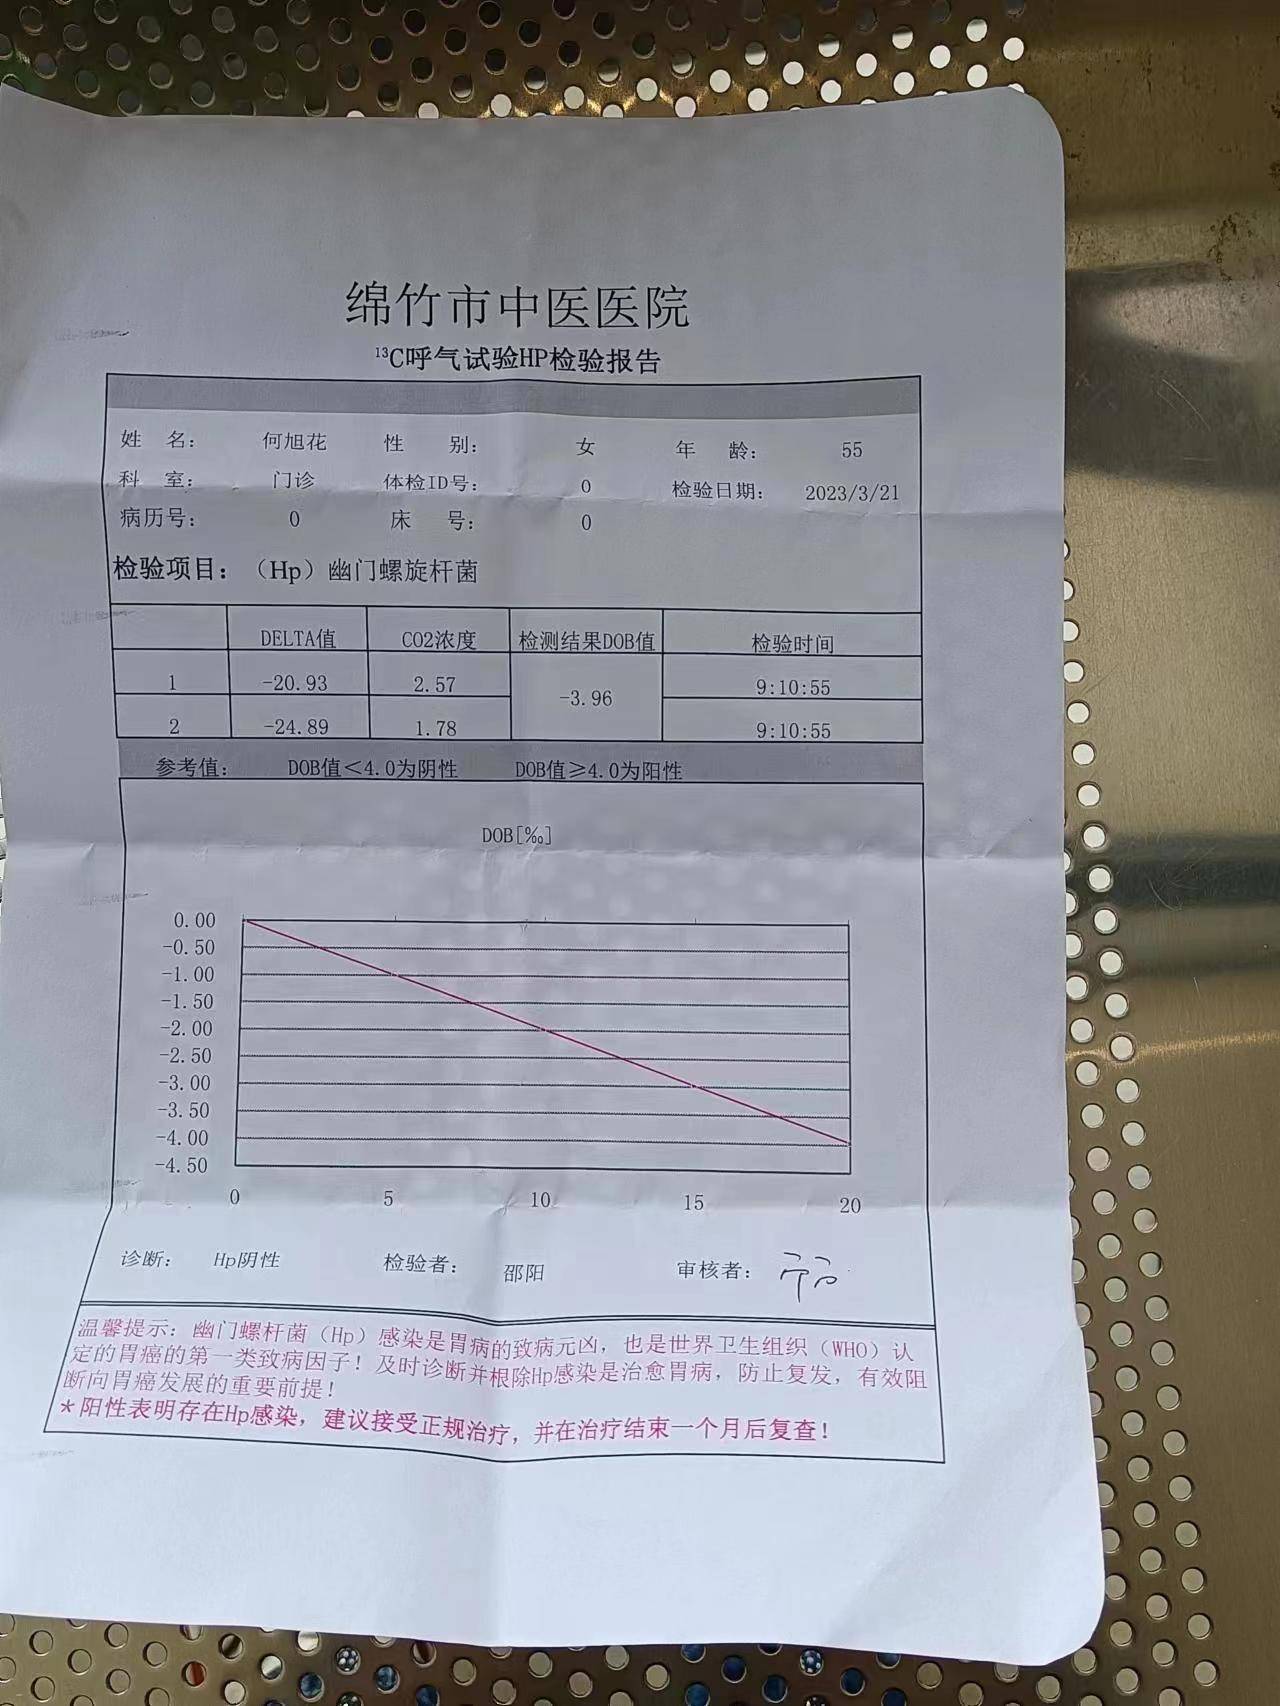 绵竹市中医医院
¹³C呼气试验HP检验报告
姓 名： 何旭花 性 别： 女 年 龄： 55
科 室： 门诊 体检ID号： 0 检验日期： 2023/3/21
病历号： 0 床 号： 0
检验项目：（Hp）幽门螺旋杆菌
DELTA值 CO2浓度 检测结果DOB值 检验时间
1 -20.93 2.57 -3.96 9:10:55
2 -24.89 1.78 9:10:55
参考值： DOB值＜4.0为阴性 DOB值≥4.0为阳性
DOB[‰]
0.00
-0.50
-1.00
-1.50
-2.00
-2.50
-3.00
-3.50
-4.00
-4.50
0 5 10 15 20
诊断： Hp阴性 检验者： 邵阳 审核者：
温馨提示：幽门螺杆菌（Hp）感染是胃病的致病元凶，也是世界卫生组织（WHO）认
定的胃癌的第一类致病因子！及时诊断并根除Hp感染是治愈胃病，防止复发，有效阻
断向胃癌发展的重要前提！
*阳性表明存在Hp感染，建议接受正规治疗，并在治疗结束一个月后复查！